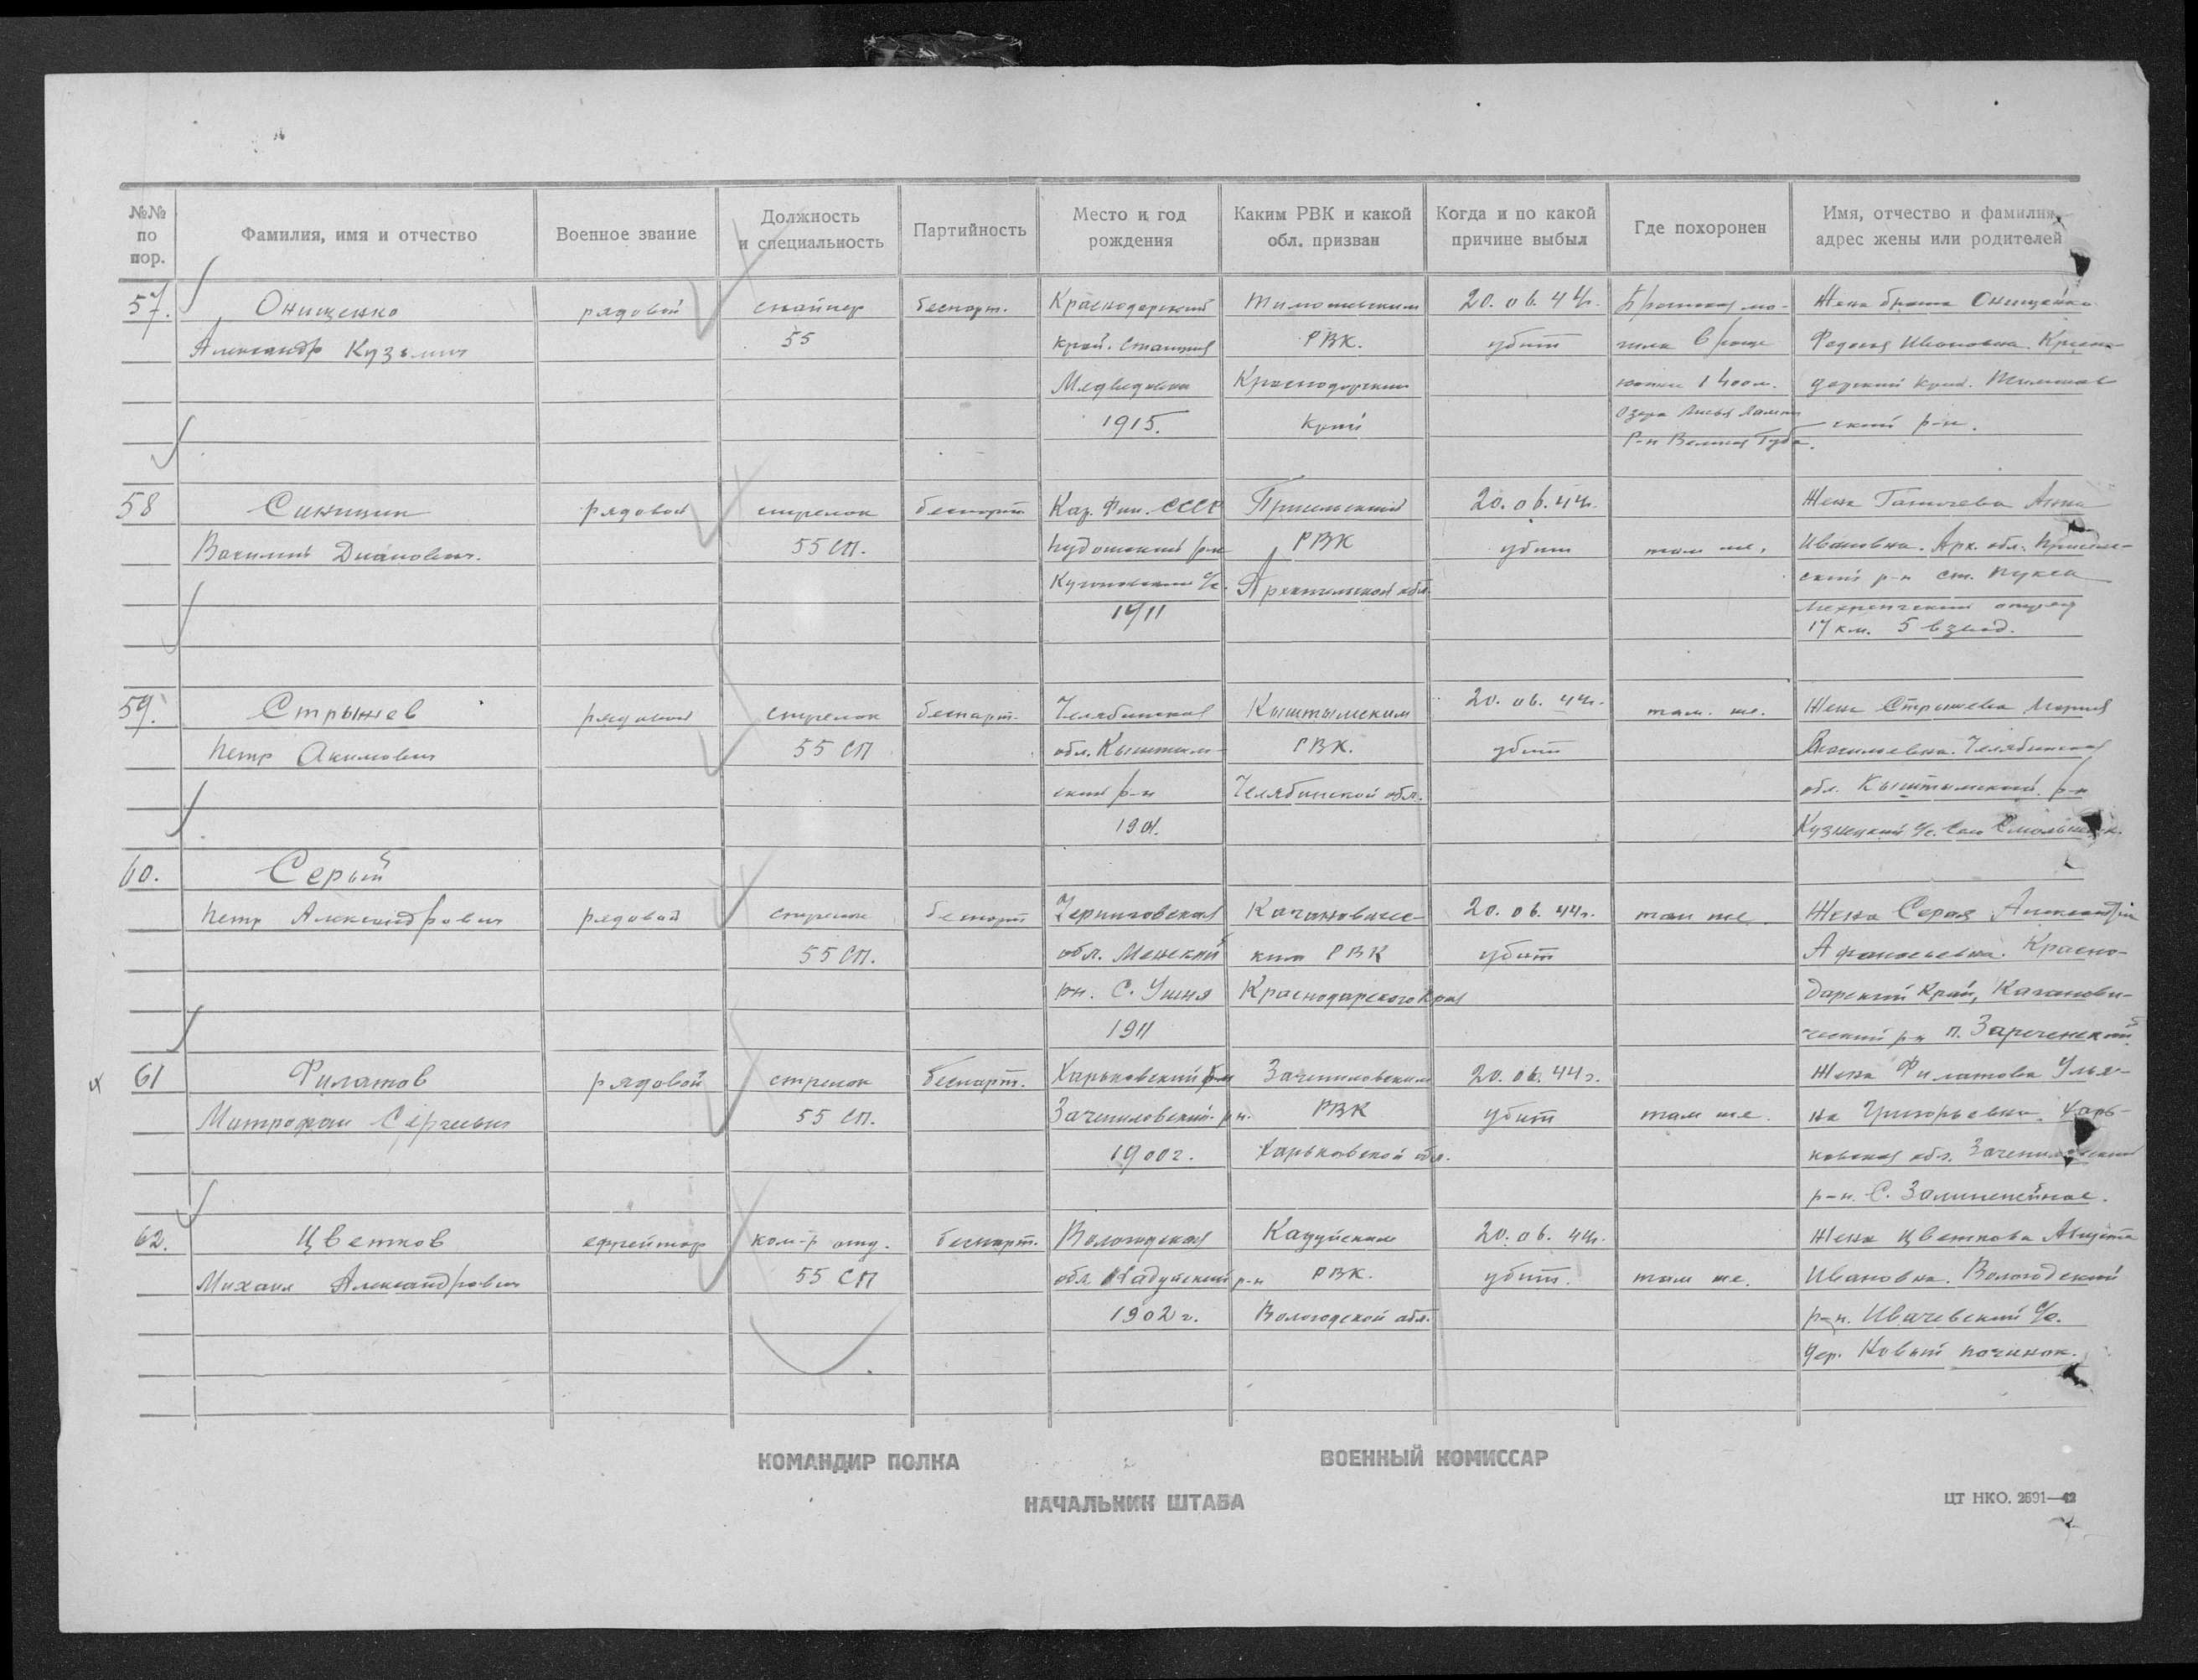 №№ по пор.
Фамилия, имя и отчество
Военное звание
Должность и специальность
Партийность
Место и год рождения
Каким РВК и какой обл. призван
Когда и по какой причине выбыл
Где похоронен
Имя, отчество и фамилия, адрес жены или родителей
57. Онищенко рядовой снайпер беспарт. Краснодарский Тимошевским 20.06.44г. Братская мо- Жена брата Онищенко
Александр Кузьмич 55 край. Станция РВК. убит гила в роще Федосья Ивановна. Красно-
Медведовка Краснодарский 1400 м. дарский край. Тимошев
1915. край Озера ский р-н.
Р-н Великая Губа.
58 Синицин рядовой стрелок беспарт. Кар. Фин. СССР 20.06.44г. Жена Анна
55 СП. Пудожский р-н РВК убит там же. Ивановна. Арх. обл.
с/с. Архангельской обл. ский р-н ст. Пукса
1911
17 км. 5 взвод.
59. Стрыжев рядовой стрелок беспарт. Челябинская Кыштымским 20.06.44г. там же. Жена Стрыжева Мария
Петр Акимович 55 СП обл. Кыштым- РВК. убит Челябинская
ский р-н Челябинской обл. обл. Кыштымский р-н
1901. Кузнецкий с/с.
60. Серый
Петр Александрович рядовой стрелок беспарт Черниговская Кагановиче- 20.06.44г. там же Жена Серая
55 СП. обл. Менский ким РВК убит Афанасьевна. Красно-
р-н. С. Ушня Краснодарского края дарский край, Каганови-
1911 ческий р-н п. Зареченский
61 Филатов рядовой стрелок беспарт. Харьковский Зачепиловским 20.06.44г. Жена Филатова Улья-
Митрофан Сергеевич 55 СП. Зачепиловский р-н. РВК убит там же. на Григорьевна. Харь-
1900г. Харьковской обл. ковская обл. Зачепиловский
р-н. С.
62. Цветков ефрейтор ком-р отд. беспарт. Вологодская Кадуйским 20.06.44г. Жена Цветкова
Михаил Александрович 55 СП обл. Кадуйский р-н РВК. убит. там же. Ивановна. Вологодский
1902г. Вологодской обл. р-н. Ивачевский с/с.
дер. Новый починок.
КОМАНДИР ПОЛКА
ВОЕННЫЙ КОМИССАР
НАЧАЛЬНИК ШТАБА
ЦТ НКО. 2691—42